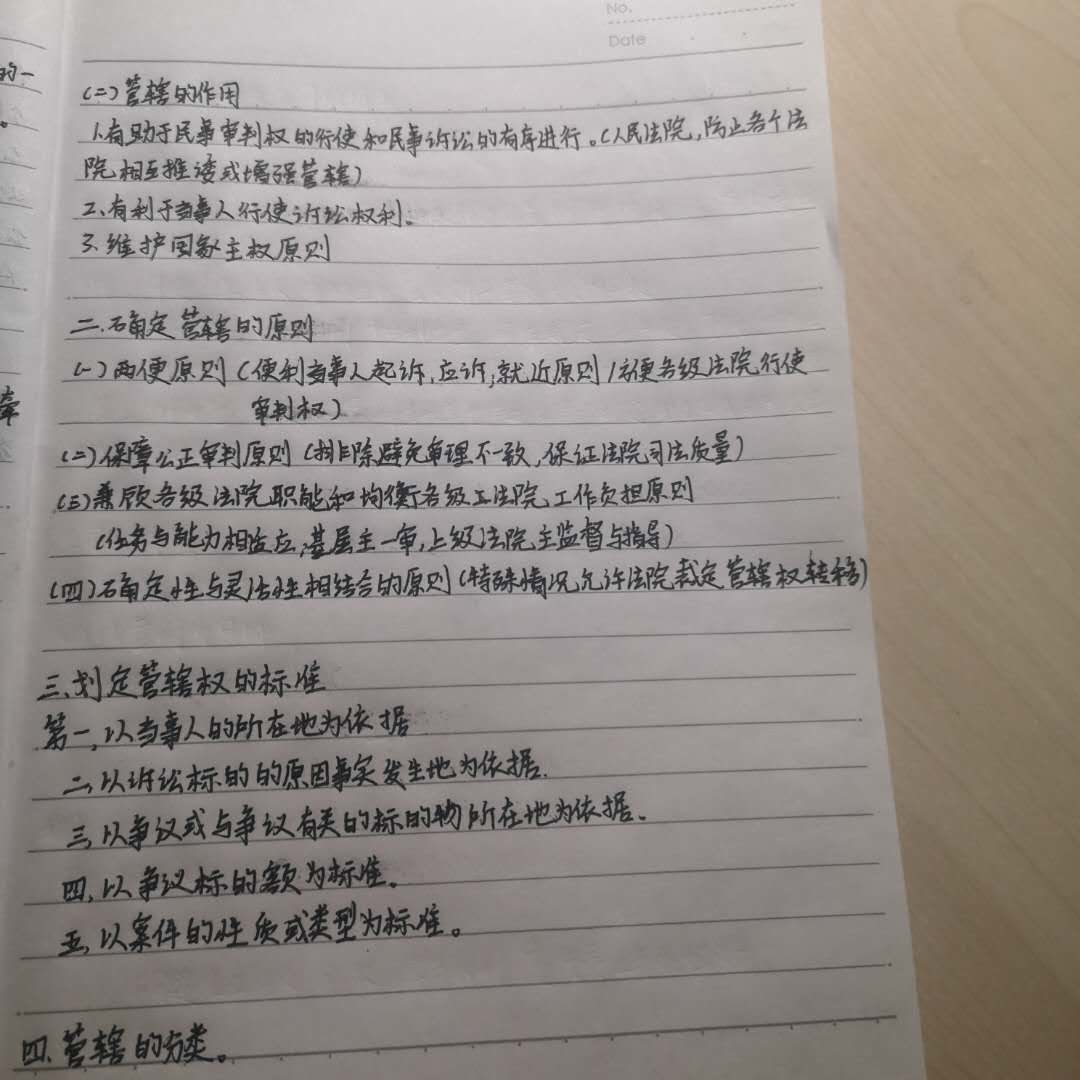 No.
Date
的一
。
(二)管辖的作用
1.有助于民事审判权的行使和民事诉讼的有序进行。(人民法院,防止各个法
院相互推诿或增强管辖)
2、有利于当事人行使诉讼权利。
3.维护国家主权原则
二.确定管辖的原则
(一)两便原则(便利当事人起诉,应诉,就近原则/方便各级法院行使
审判权)
(二)保障公正审判原则(排除避免审理不一致,保证法院司法质量)
(三)兼顾各级法院职能和均衡各级工法院工作负担原则
(任务与能力相适应,基层主一审,上级法院主监督与指导)
(四)确定性与灵活性相结合的原则(特殊情况允许法院裁定管辖权转移)
三、划定管辖权的标准
第一,以当事人的所在地为依据
二、以诉讼标的的原因事实发生地为依据.
三、以争议或与争议有关的标的物所在地为依据、
四,以争议标的额为标准。
五,以案件的性质或类型为标准。
四.管辖的分类。